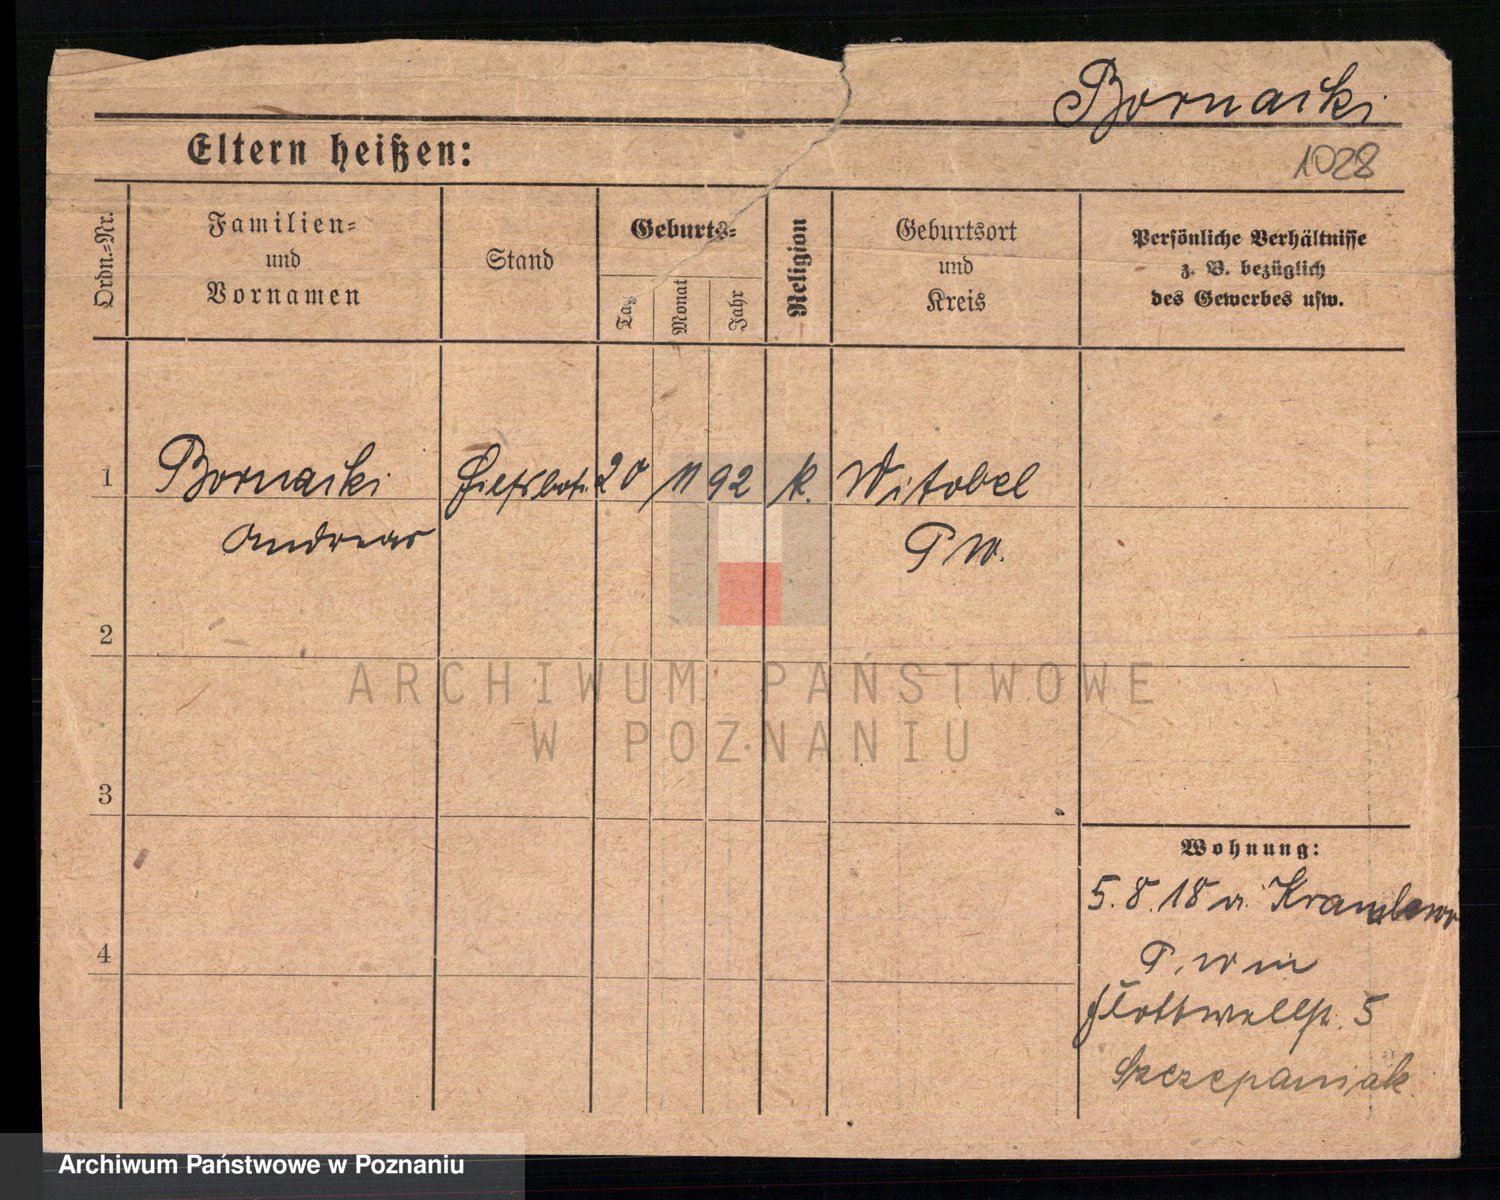 Bornacki
Eltern heißen:
1028
Ordn.-Nr.
Familien- und Vornamen
Stand
Geburts-
Tag
Monat
Jahr
Religion
Geburtsort und Kreis
Persönliche Verhältnisse
z. B. bezüglich
des Gewerbes usw.
1 Bornacki Hilfsbot. 20 11 92 k. Witobel
Andreas P W.
2
ARCHIWUM PAŃSTWOWE
W POZNANIU
3
Wohnung:
5.8.18 v.
4
P. W
Flottwellstr. 5
Szczepaniak
Archiwum Państwowe w Poznaniu